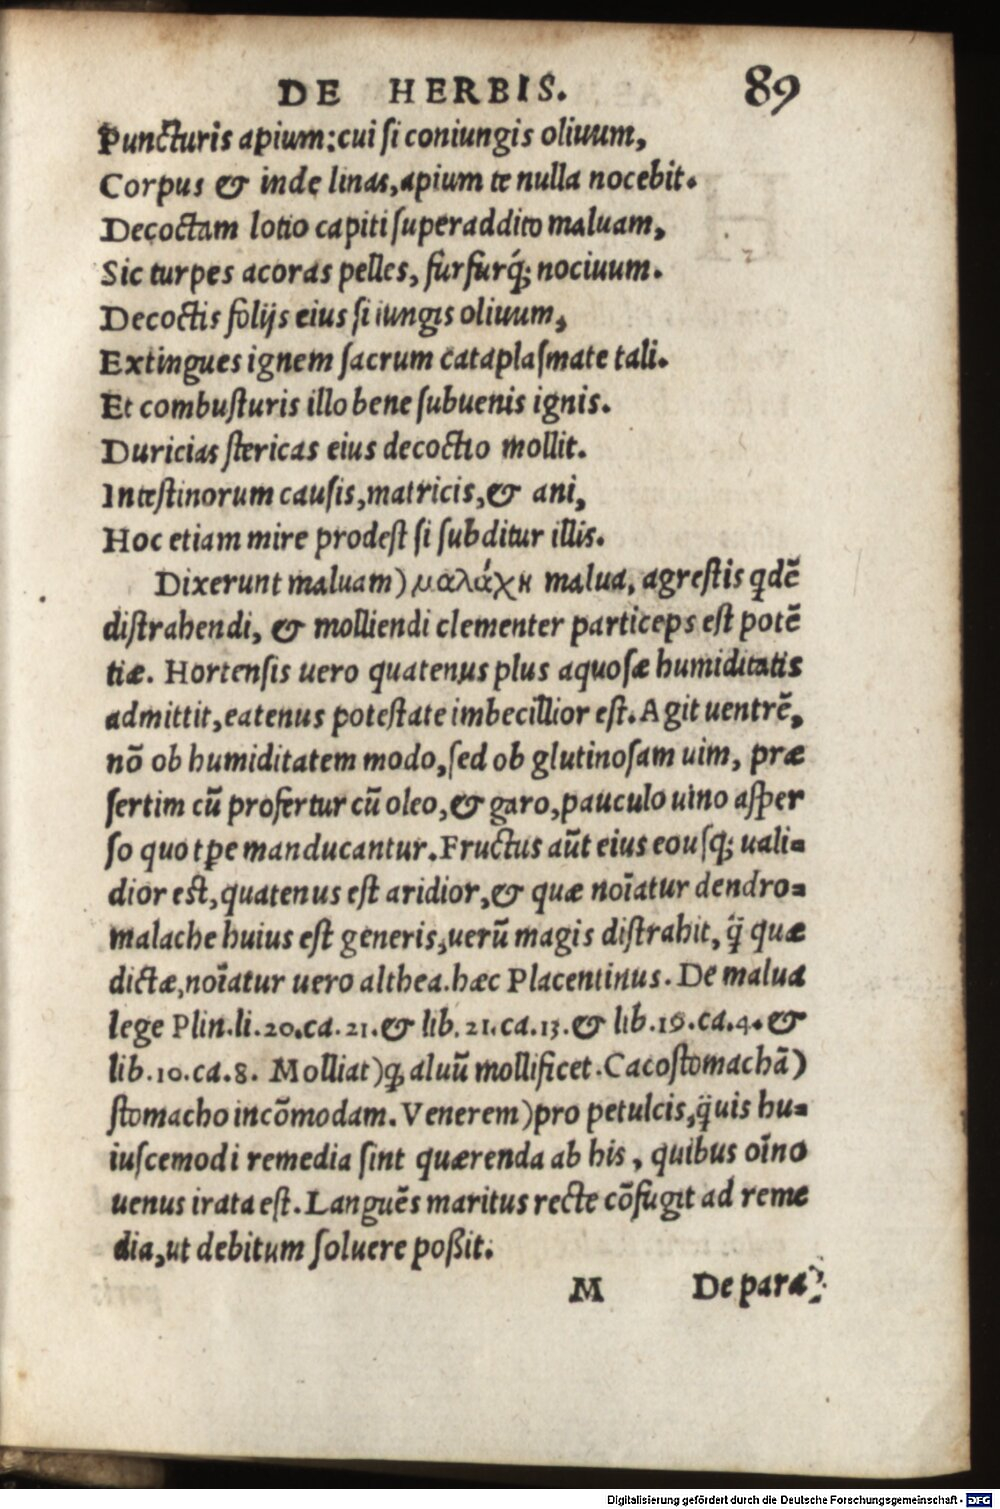 DE HERBIS. 89
Puncturis apium: cui si coniungis oliuum,
Corpus & inde linas, apium te nulla nocebit.
Decoctam lotio capiti superaddito maluam,
Sic turpes acoras pelles, furfurq́; nociuum.
Decoctis folijs eius si iungis oliuum,
Extingues ignem sacrum cataplasmate tali.
Et combusturis illo bene subuenis ignis.
Duricias stericas eius decoctio mollit.
Intestinorum causis, matricis, & ani,
Hoc etiam mire prodest si subditur illis.
Dixerunt maluam) μαλάχη malua, agrestis qdẽ
distrahendi, & molliendi clementer particeps est potẽ
tiæ. Hortensis uero quatenus plus aquosæ humiditatis
admittit, eatenus potestate imbecillior est. Agit uentrẽ,
nõ ob humiditatem modo, sed ob glutinosam uim, præ
sertim cũ profertur cũ oleo, & garo, pauculo uino asper
so quo tpe manducantur. Fructus aũt eius eousq; uali-
dior est, quatenus est aridior, & quæ noĩatur dendro-
malache huius est generis, uerũ magis distrahit, q̃ quæ
dictæ, noĩatur uero althea. hæc Placentinus. De malua
lege Plin. li. 20. ca. 21. & lib. 21. ca. 13. & lib. 19. ca. 4. &
lib. 10. ca. 8. Molliat) q; aluũ mollificet. Cacostomachã)
stomacho incõmodam. Venerem) pro petulcis, q̃uis hu-
iuscemodi remedia sint quærenda ab his, quibus oĩno
uenus irata est. Languẽs maritus recte cõfugit ad reme
dia, ut debitum soluere poßit.
M De para
Digitalisierung gefördert durch die Deutsche Forschungsgemeinschaft - DFG